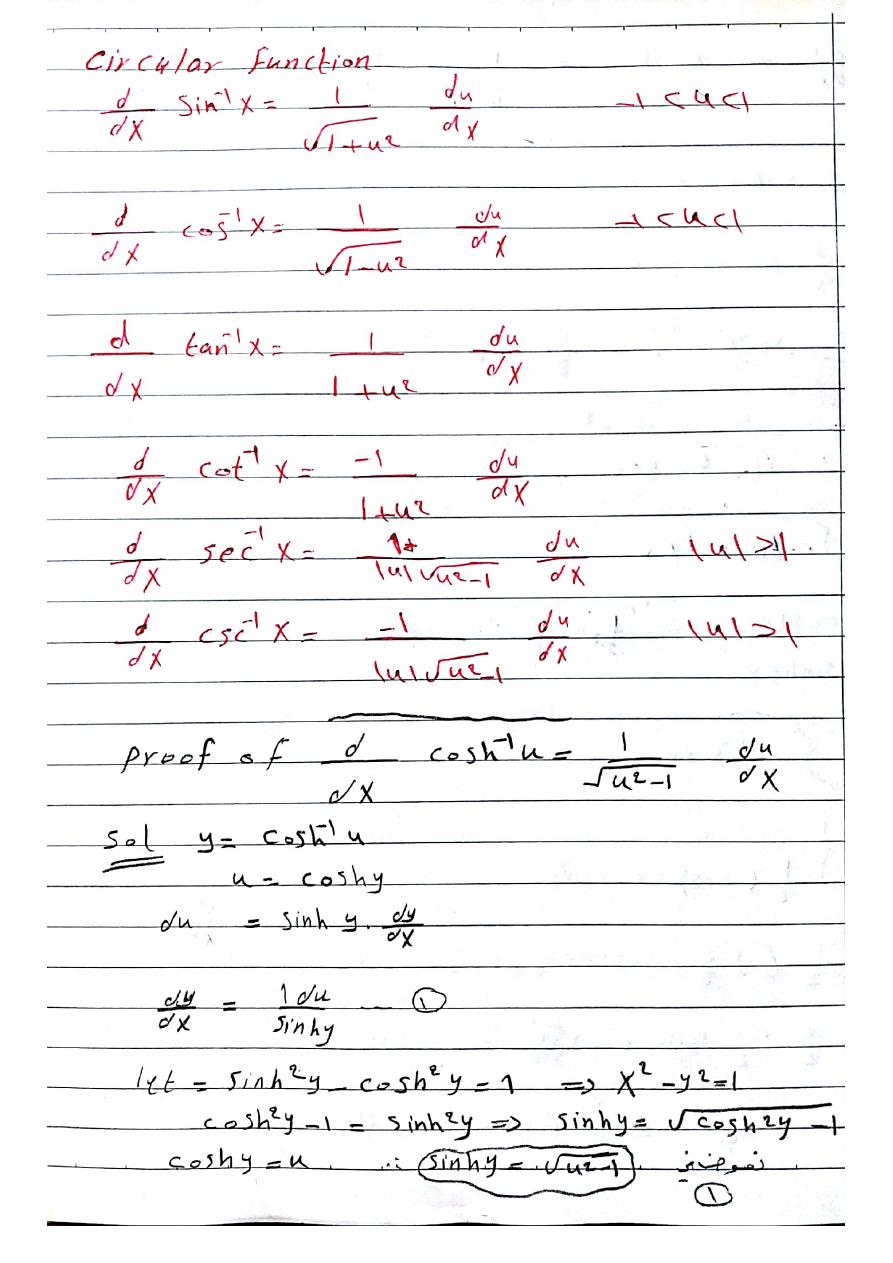 Circular function
d/dX Sin⁻¹ X = 1/√(1+u²) du/dX -1<u<1
d/dX cos⁻¹ X = 1/√(1-u²) du/dX -1<u<1
d/dX tan⁻¹ X = 1/(1+u²) du/dX
d/dX cot⁻¹ X = -1/(1+u²) du/dX
d/dX sec⁻¹ X = 1/(|u|√(u²-1)) du/dX |u|>1
d/dX csc⁻¹ X = -1/(|u|√(u²-1)) du/dX |u|>1
Proof of d/dX cosh⁻¹ u = 1/√(u²-1) du/dX
Sol y = cosh⁻¹ u
u = coshy
du = Sinh y. dy/dX
dy/dX = 1 du/Sinhy --- ①
let = Sinh²y - cosh²y = 1 ⇒ X² - y² = 1
cosh²y - 1 = Sinh²y ⇒ Sinhy = √(cosh²y - 1)
coshy = u ∴ Sinhy = √(u²-1)
①